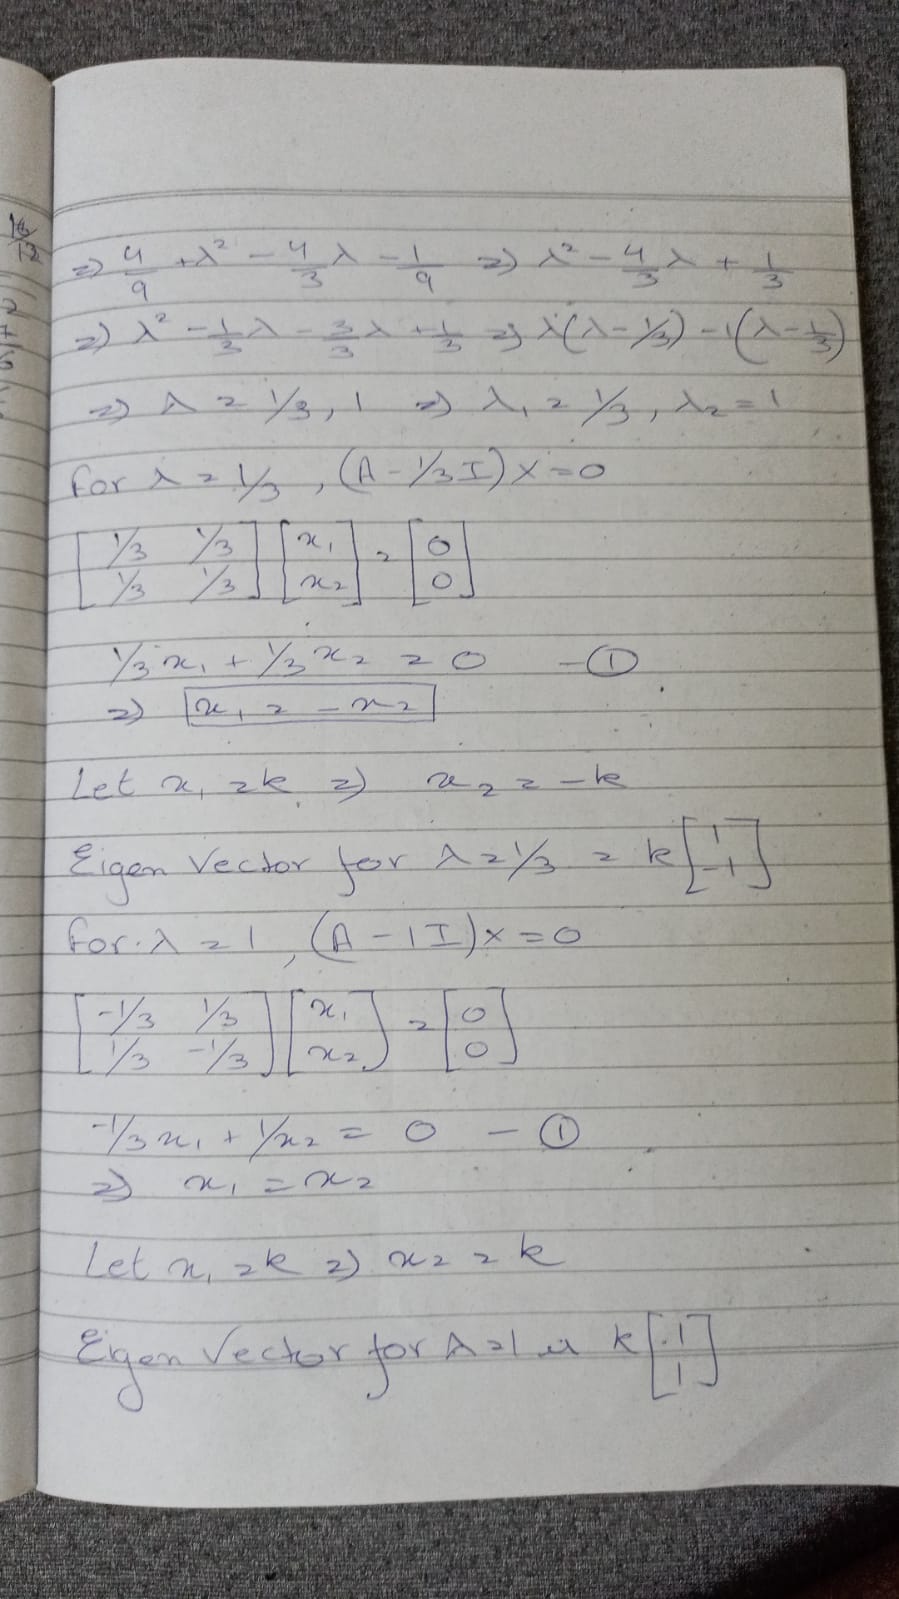 16/12
⇒ 4/9 + λ² - 4/3 λ - 1/9 ⇒ λ² - 4/3 λ + 1/3
⇒ λ² - 1/3 λ - 3/3 λ + 1/3 ⇒ λ(λ - 1/3) - 1(λ - 1/3)
⇒ λ = 1/3, 1 ⇒ λ₁ = 1/3, λ₂ = 1
For λ = 1/3, (A - 1/3 I)X = 0
[1/3 1/3] [x₁] = [0]
[1/3 1/3] [x₂] [0]
1/3 x₁ + 1/3 x₂ = 0 - ①
⇒ x₁ = - x₂
Let x₁ = k ⇒ x₂ = -k
Eigen Vector for λ = 1/3 = k [1]
[-1]
For λ = 1, (A - 1I)X = 0
[-1/3 1/3] [x₁] = [0]
[1/3 -1/3] [x₂] [0]
-1/3 x₁ + 1/x₂ = 0 - ①
⇒ x₁ = x₂
Let x₁ = k ⇒ x₂ = k
Eigen Vector for λ = 1 is k [1]
[1]